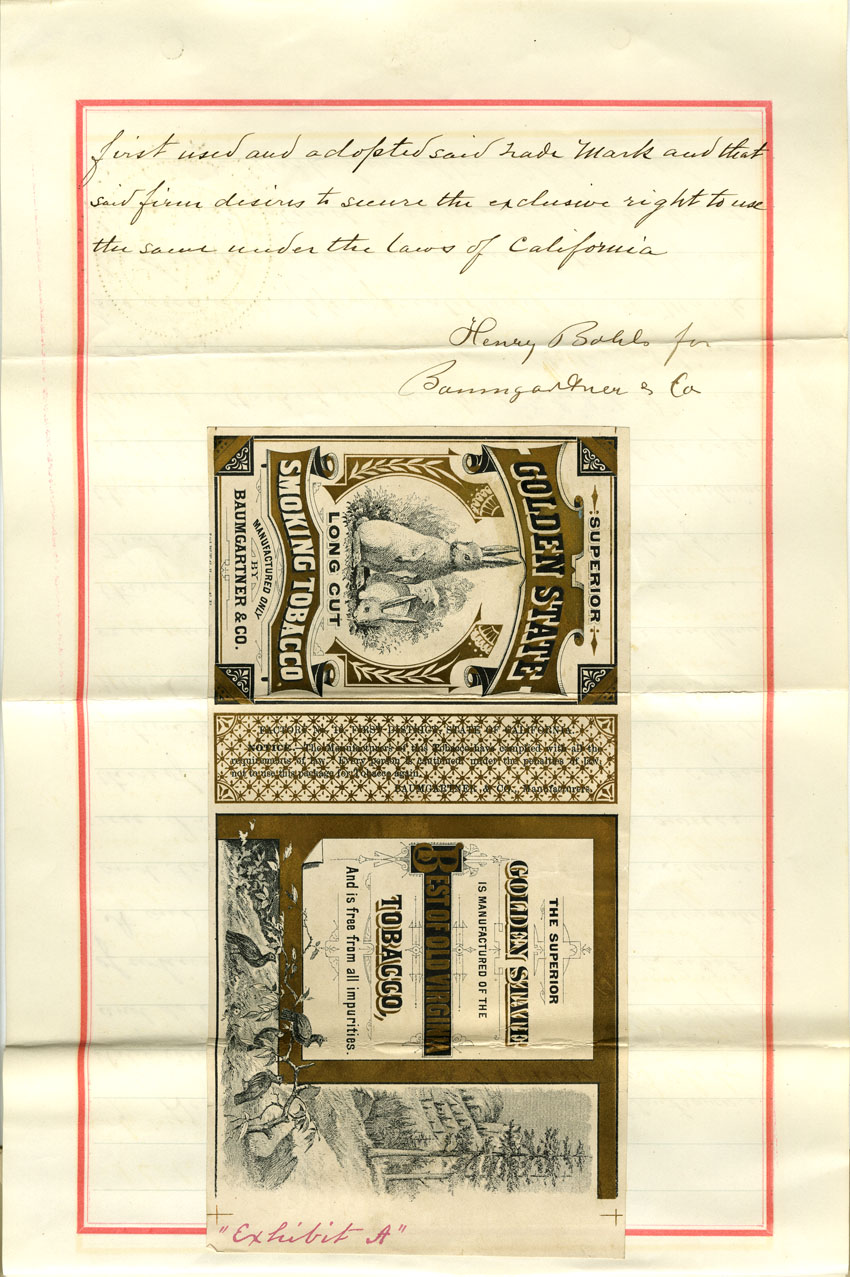 first used and adopted said Trade Mark and that
said firm desires to secure the exclusive right to use
the same under the laws of California
Henry Bohls for
Baumgartner & Co
SUPERIOR
GOLDEN STATE
LONG CUT
SMOKING TOBACCO
MANUFACTURED ONLY
BY
BAUMGARTNER & CO.
FACTORY No. FIRST DISTRICT, STATE OF CALIFORNIA.
NOTICE.—The Manufacturers of this Tobacco have complied with all the
requirements of law. Every person is cautioned, under the penalties of law,
not to use this package for Tobacco again.
BAUMGARTNER & CO., Manufacturers.
THE SUPERIOR
GOLDEN STATE
IS MANUFACTURED OF THE
BEST OF OLD VIRGINIA
TOBACCO,
And is free from all impurities.
"Exhibit A"